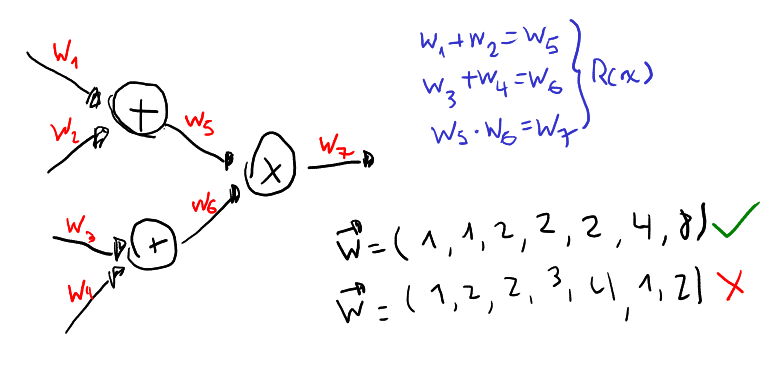 w₁
w₂
+
w₅
w₃
w₄
+
w₆
x
w₇
w₁+w₂=w₅
w₃+w₄=w₆
w₅·w₆=w₇
R(x)
w=(1,1,2,2,2,4,8)
w=(1,2,2,3,4,1,2)